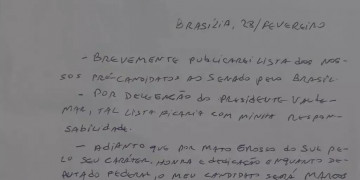 BRASÍLIA, 28/FEVEREIRO
- BREVEMENTE PUBLICAREI LISTA DOS NOS-
SOS PRÉ-CANDIDATOS AO SENADO PELO BRASIL.
- POR DELEGAÇÃO DO PRESIDENTE VALDE-
MAR, TAL LISTA FICARIA COM MINHA RESPON-
SABILIDADE.
- ADIANTO QUE POR MATO GROSSO DO SUL PE-
LO SEU CARÁTER, HONRA E DEDICAÇÃO ENQUANTO DE-
PUTADO FEDERAL, O MEU CANDIDATO SERÁ MARCOS